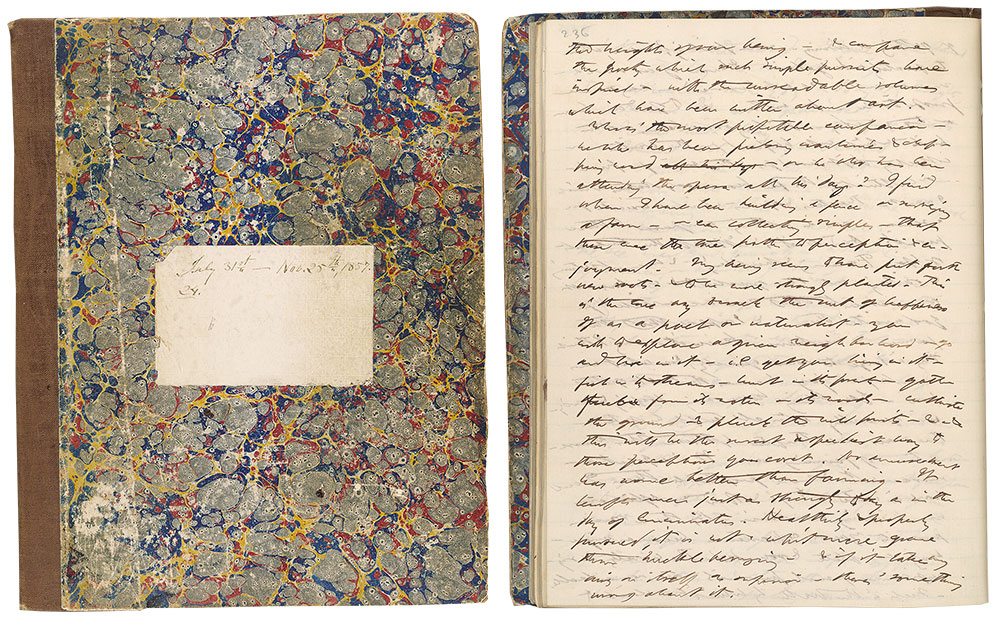 July 31st — Nov. 25th, 1857.
24.
236
the heights of our being — & compare
the poetry which such simple pursuits have
inspired — with the unreadable volumes
which have been written about art.
Who is the most profitable companion —
he who has been picking cranberries & chop-
ping wood — or he who has been
attending the opera all his days? I find
when I have been building a fence or surveying
a farm — or even collecting simples — that
these were the true paths to perception & en-
joyment. My being seems to have put forth
new roots — & to be more strongly planted — This
is the true way to crack the nut of happiness
If as a poet or naturalist — you
wish to explore a given neighborhood — go
and live in it — i.e. get your living in it —
fish in its streams — hunt in its forests — gather
fuel from its water — its woods — cultivate
the ground — & pluck the wild fruits — &c &c
this will be the surest & speediest way to
those perceptions you covet. No amusement
has worn better than farming. It
tempts men just as strongly to day as in the
day of Cincinnatus. Healthily & properly
pursued it is not a whit more grave
than huckleberrying — & if it takes
any airs on itself as superior — there's something
wrong about it.